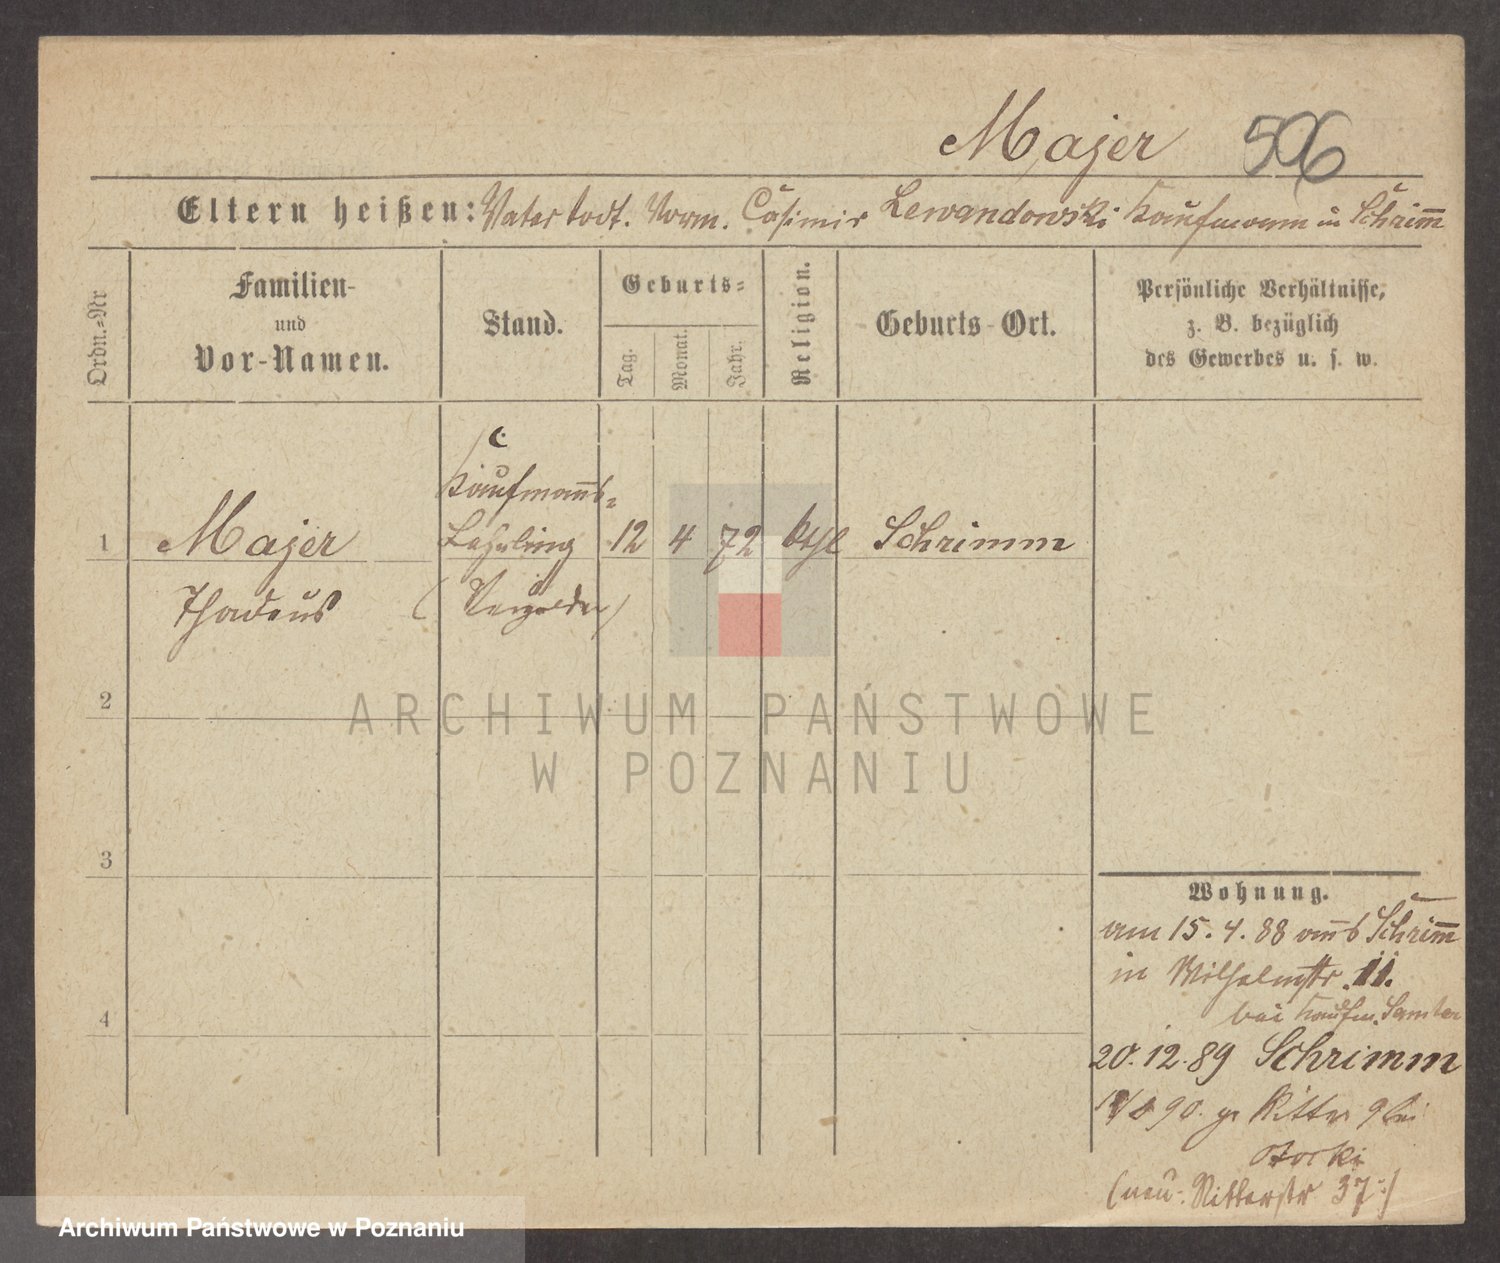 Majer 506
Eltern heißen: Vater todt. Vorm. Casimir Lewandowski Kaufmann in Schrim̅
Ordn.=Nr
Familien-
und
Vor-Namen.
Stand.
Geburts=
Tag.
Monat.
Jahr.
Religion.
Geburts-Ort.
Persönliche Verhältnisse,
z. B. bezüglich
des Gewerbes u. s. w.
Kaufman̅s=
1 Majer Lehrling 12 4 72 kthl Schrimm
Thadeus (Vergolder)
2
3
4
Wohnung.
am 15. 4. 88 aus Schrim̅
in Wilhelmstr. 11.
bei Kaufm. Samter
20. 12. 89 Schrimm
90. gr Ritter 9 bei
(neu: Ritterstr 37:)
ARCHIWUM PAŃSTWOWE
W POZNANIU
Archiwum Państwowe w Poznaniu